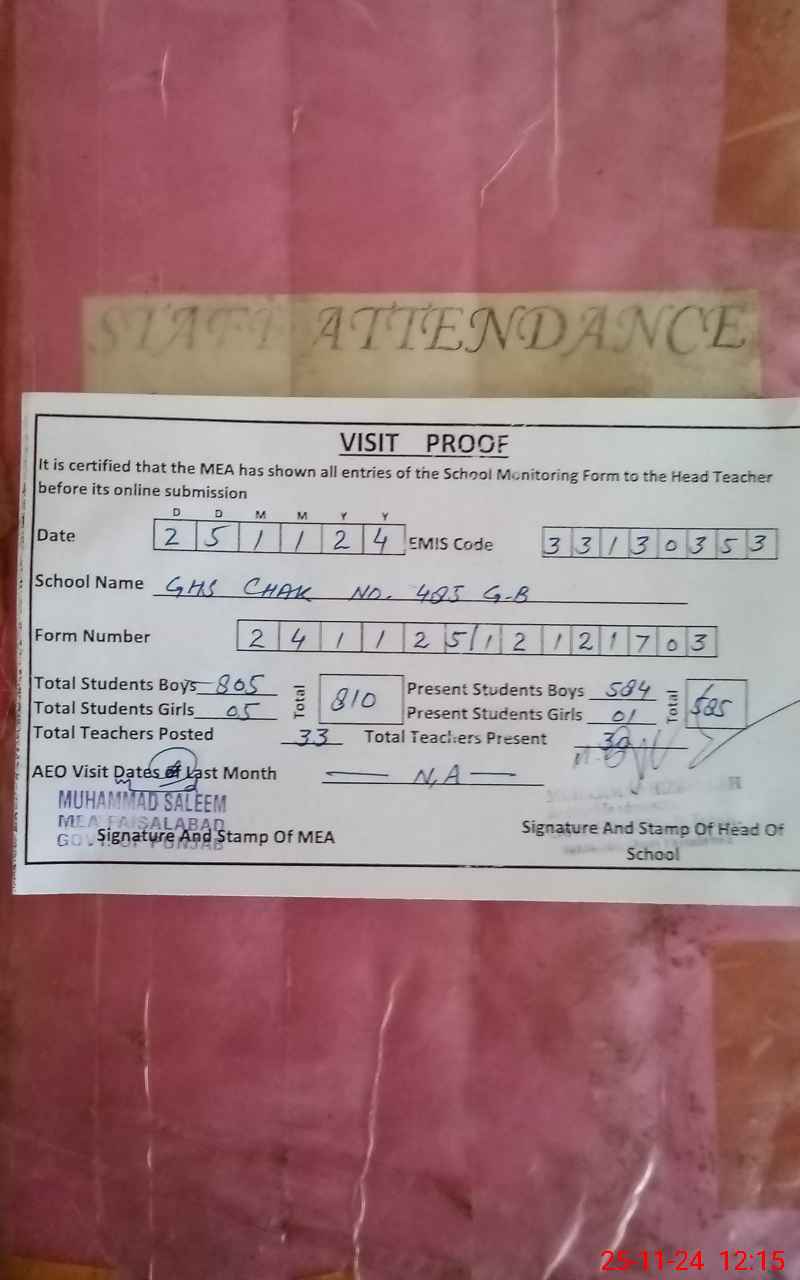 STAFF ATTENDANCE
VISIT PROOF
It is certified that the MEA has shown all entries of the School Monitoring Form to the Head Teacher
before its online submission
D D M M Y Y
Date 2 5 1 1 2 4 EMIS Code 3 3 1 3 0 3 5 3
School Name GHS CHAK NO. 485 G-B
Form Number 2 4 1 1 2 5 1 2 1 2 1 7 0 3
Total Students Boys 805 Total 810 Present Students Boys 584 Total 585
Total Students Girls 05 Present Students Girls 01
Total Teachers Posted 33 Total Teachers Present 30
AEO Visit Dates of Last Month N,A
MUHAMMAD SALEEM
MEA FAISALABAD
GOVT. OF PUNJAB
Signature And Stamp Of MEA
Signature And Stamp Of Head Of
School
25-11-24 12:15